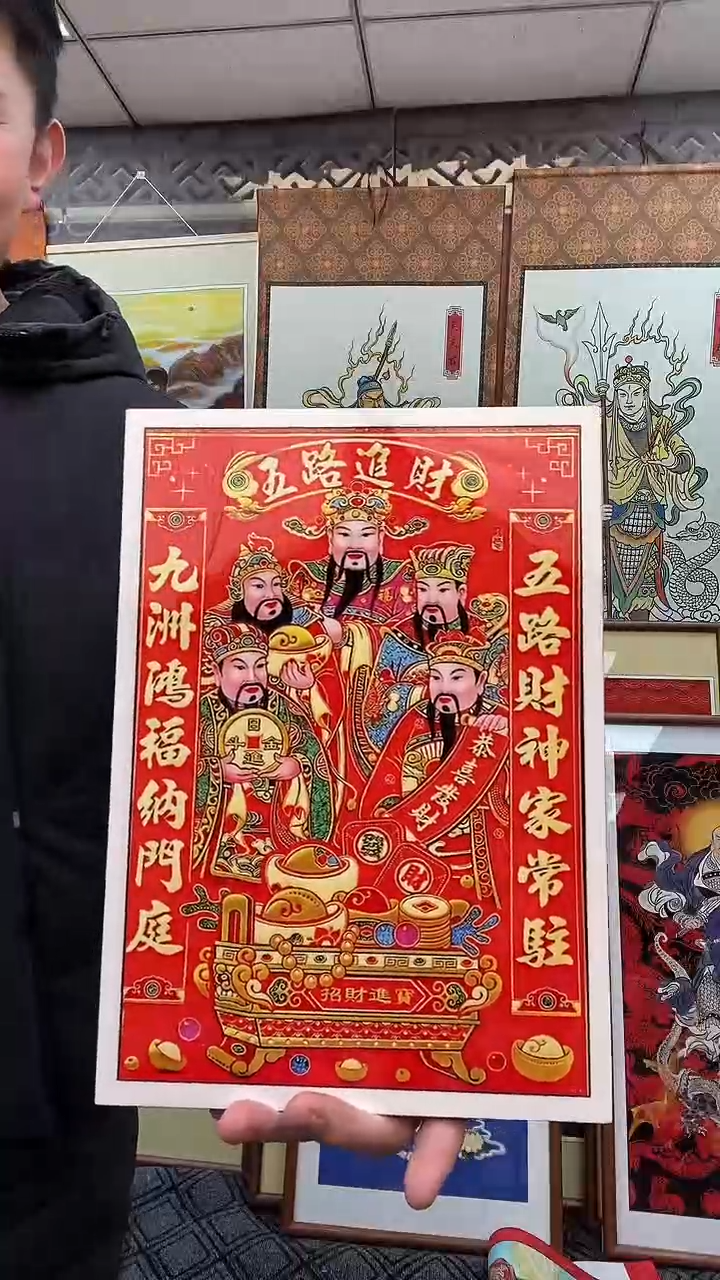 五路進財
五路財神家常駐
九洲鴻福納門庭
恭喜發財
財
招財進寶